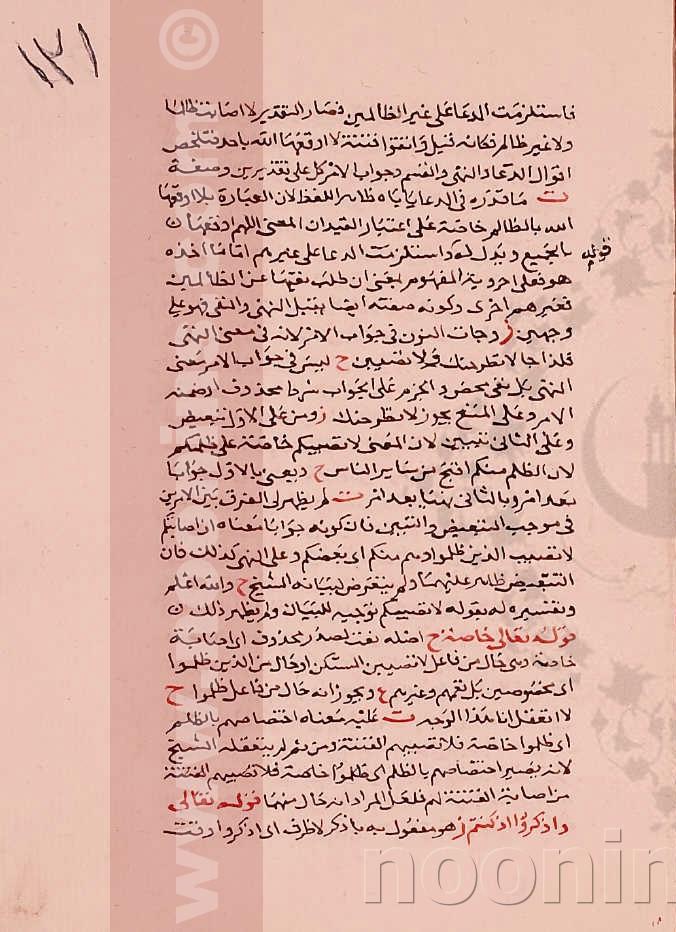 ١٣١
فاستلزمت الدعا على غير الظالمين فصار التقدير لا اصابت ظالما
ولا غير ظالم فكانه قيل واتقوا فتنة لا اوقعها الله باحد فتلخص
اقوال الدعا والنهي والقسم وجواب الامر كل على تقديرين وصفة
ت ما قدره في الدعا ياباه ظاهر اللفظ لان العبارة بلا اوقعها
الله بالظالم خاصة على اعتبار القيدان المعنى اللهم اوقعها
بالجميع ويدل له واستلزمت الدعا على غيرهم اما ما اخذه
قوله
هو فعلى اخروية المفهوم بمعنى ان طلب نفيها عن الظالمين
فغيرهم احرى وكونه صفته ايضا يقبل النهي والنفي فهو على
وجهين ز وجات النون في جواب الامر لانه في معنى النهي
فلذا جا لا تطرحنك ولا تصيبن ح ليس في جواب الامر معنى
النهي بل نفي محض والجزم على الجواب شرط محذوف او ضمنه
الامر وعلى المنع يجوز لا تطرحنك ز ومن على الاول تبعيض
وعلى الثاني تبيين لان المعنى لا تصيبكم خاصة على ظلمكم
لان الظلم منكم اقبح من سائر الناس ح ويعني بالاول جوابا
بعد امر وبالثاني نهيا بعد امر ت لم يظهر لي الفرق بين الامرين
في موجب التبعيض والتبيين فان كونه جوابا معناه ان اصابتكم
لا تصيب الذين ظلموا وهم منكم اي بعضكم وعلى النهي كذلك فان
التبعيض ظاهر عليهما ولم يتعرض لبيانه الشيخ ح والله اعلم
وتفسيره له بقوله لا تصيبكم توجيه للبيان ولم يظهر ذلك
قوله تعالى خاصة ح اصله نعت لمصدر محذوف اي اصابة
خاصة وهي حال من فاعل لا تصيبن المستكن او حال من الذين ظلموا
اي مخصوصين بل تعمهم وغيرهم ع ويجوز انه حال من فاعل ظلموا ح
لا اتعقل انا هذا الوجه ت عليه معناه اختصاصهم بالظلم
اي ظلموا خاصة فلا تصيبهم الفتنة ومن ثم لم يتعقله الشيخ
لانه يصير اختصاصهم بالظلم اي ظلموا خاصة فلا تصيبهم الفتنة
من اصابة الفتنة لهم فلعل المراد انه حال منهما قوله تعالى
واذكروا اذ كنتم ز هو مفعول به باذكر لا ظرف اي اذكروا وقت
noonin